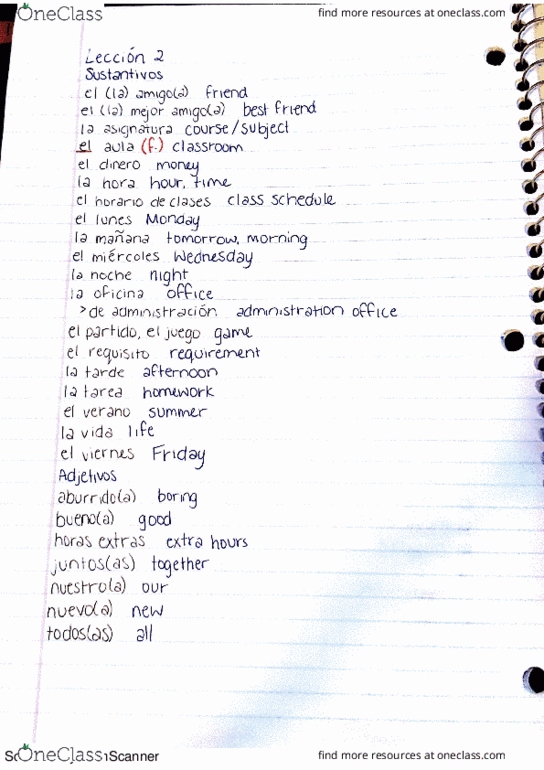 OneClass find more resources at oneclass.com
Lección 2
Sustantivos
el (la) amigo(a) friend
el (la) mejor amigo(a) best friend
la asignatura course/subject
el aula (f.) classroom
el dinero money
la hora hour, time
el horario de clases class schedule
el lunes Monday
la mañana tomorrow, morning
el miércoles Wednesday
la noche night
la oficina office
>de administración administration office
el partido, el juego game
el requisito requirement
la tarde afternoon
la tarea homework
el verano summer
la vida life
el viernes Friday
Adjetivos
aburrido(a) boring
bueno(a) good
horas extras extra hours
juntos(as) together
nuestro(a) our
nuevo(a) new
todos(as) all
OneClass Scanner find more resources at oneclass.com